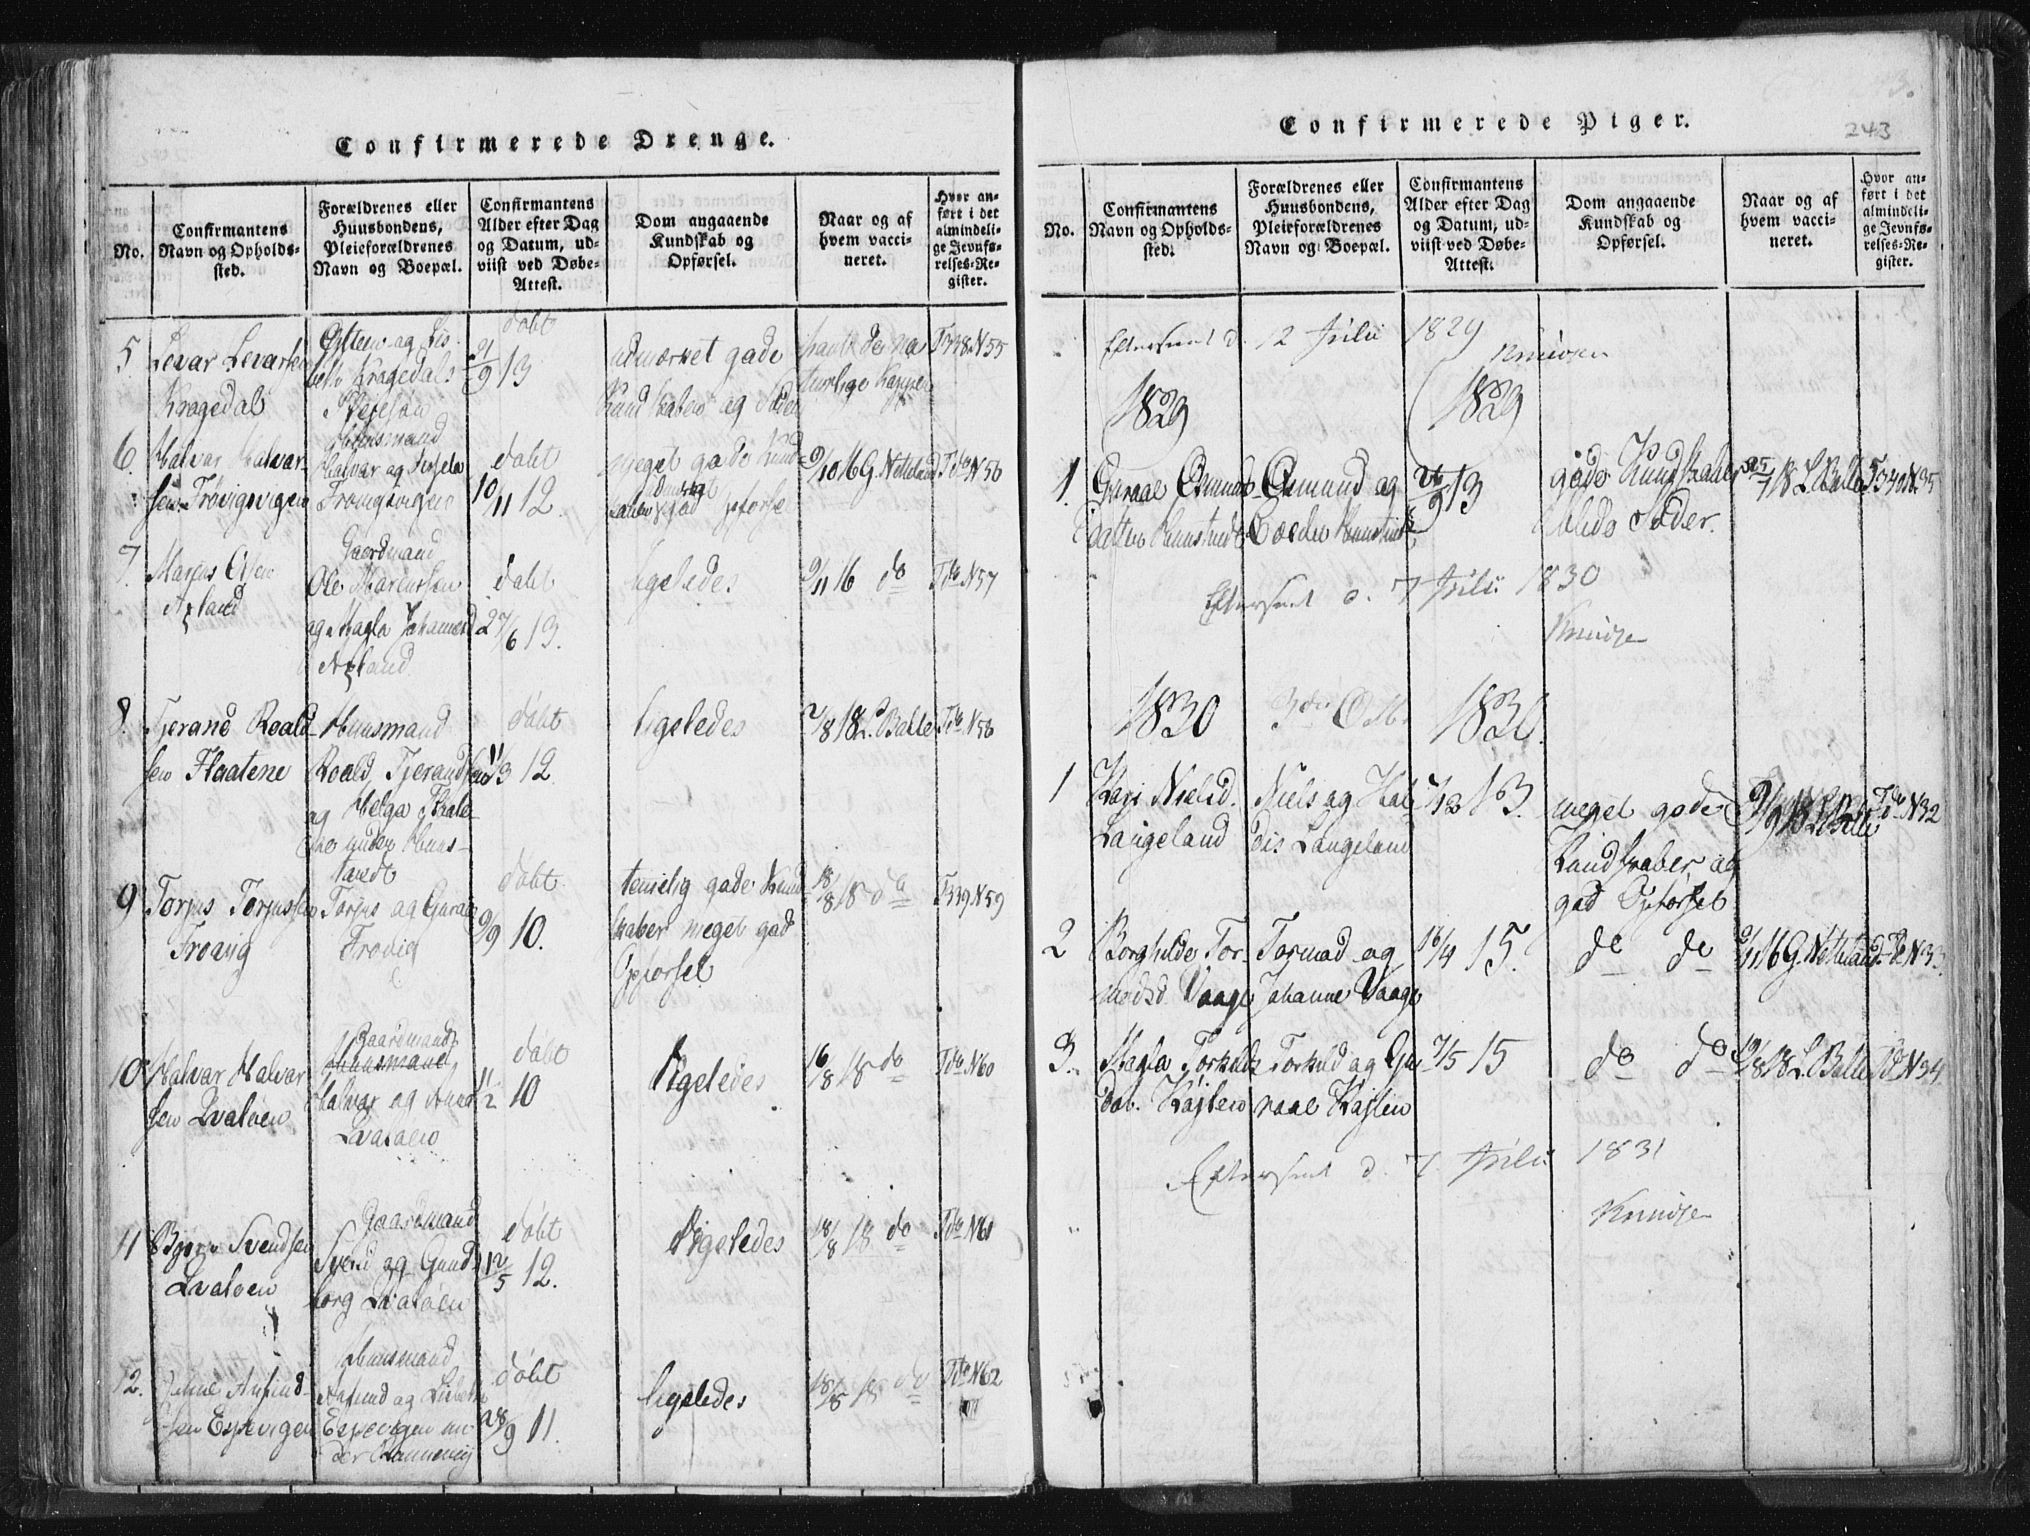 Confirmerede Drenge.
No.
Confirmantens Navn og Opholds-sted.
Forældrenes eller Huusbondens, Pleieforældrenes Navn og Boepæl.
Confirmantens Alder efter Dag og Datum, ud-viist ved Døbe-Attest.
Dom angaaende Kundskab og Opførsel.
Naar og af hvem vacci-neret.
Hvor an-ført i det almindeli-ge Jevnfø-relses-Re-gister.
5 Levar Levarsen
Kragedal
døbt
9 13
udmærket gode
Kundskaber og Sæder
havt de na
turlige Kopper
T338 N55
6. Halvar Halvar-
sen Trovigsvigen
Huusmand
Halvar og
Trovigsvigen
døbt
10/11 12.
meget gode Kund-
skaber
9/10 16 G. Netteland
T do N56
7. Marcus Olsen
Axland
Gaardmand
Ole Marcussen
og Magla Johannesd
Axland
døbt
27/6 13.
ligeledes
9/11 16 do
T do N57
8. Tjerand Roald-
sen Flaatene
Huusmand
Roald Tjerandsen
og Helga Flaate-
ne under Huus-
tvedt
døbt
11/3 12.
ligeledes
7/8 18 L. Balle
T do N58
9 Torjus Torjussen
Trovig
Torjus og Guraae
Trovig
døbt
9/9 10.
temelig gode Kund
skaber meget god
Opførsel
18/8 18 do
T339 N59
10 Halvar Halvar
sen Qvaløen
Gaardmand
Huusmand
Halvar og
Qvaløen
døbt
11/2 10
Ligeledes
16/8 18 do
T do N60
11 Bjørn Svendsen
Qvaløen
Gaardmand
Svend og Gund
borg Qvaløen
døbt
12/5 12.
Ligeledes
18/8 18 do
T do N61
12. Anfind-
sen Espevigen
Huusmand
Anfind og Lisbeth
Espevigen un-
der
døbt
28/9 11.
ligeledes
18/8 18 do
T do N62
Confirmerede Piger.
243
No.
Confirmantens Navn og Opholds-sted.
Forældrenes eller Huusbondens, Pleieforældrenes Navn og Boepæl.
Confirmantens Alder efter Dag og Datum, ud-viist ved Døbe-Attest.
Dom angaaende Kundskab og Opførsel.
Naar og af hvem vacci-neret.
Hvor an-ført i det almindeli-ge Jevnfø-relses-Re-gister.
Efterseet d. 12 Julii 1829
1829 1829
1. Guraae Osmunds-
datter Huustvedt
Osmund og
Huustvedt
26/9 13
gode Kundskaber
Sæder.
25/7 18 L. Balle
T340 N35
Efterseet d. 7 Julii 1830
1830 1830.
1 Kari Nielsd.
Langeland
Niels og Hal-
dis Langeland
7/12 13.
meget gode
Kundskaber og
god Opførsel
9/9 18 L. Balle
T do N32
2 Borghilde Tor-
modsd. Vaage
Tormod og
Johanne Vaage
16/4 15.
do do
9/11 16 G. Netteland
do N33
3. Magla Torkilds
dat. Højlien
Torkild og Gu
raae Højlien
7/5 15
do do
19/8 18 L. Balle
T do N34
Efterseet d. 7. Julii 1831